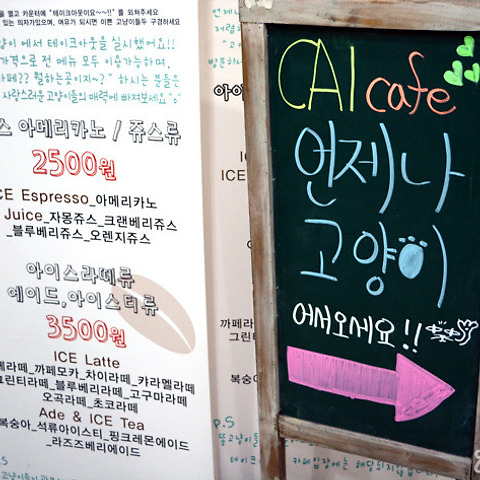 을 열고 카운터에 "테이크아웃이요~~!!" 를 외쳐주세요
있는 의자가있으며, 여유가 되시면 이쁜 고냥이들두 구경하세요
양이 에서 테이크아웃을 실시했어요!!
가격으로 전 메뉴 모두 이용가능하며,
카페?? 뭘하는곳이지~?" 하시는 분들은
사랑스러운 고양이들의 매력에 빠져보세요^^
스 아메리카노 / 쥬스류
2500원
CE Espresso_아메리카노
Juice_자몽쥬스_크랜베리쥬스
_블루베리쥬스_오렌지쥬스
아이스라떼류
에이드,아이스티류
3500원
ICE Latte
페라떼_까페모카_차이라떼_캬라멜라떼
그린티라떼_블루베리라떼_고구마라떼
오곡라떼_초코라떼
Ade & ICE Tea
복숭아_석류아이스티_핑크레몬에이드
_라즈즈베리에이드
언제나
저렴
"고
방문하시
아이
IC
ICE
까페라
그린티
복숭아
p.s
테이크
카페입장에는 해당되지
CAI cafe
언제나
고양이
어서오세요!!